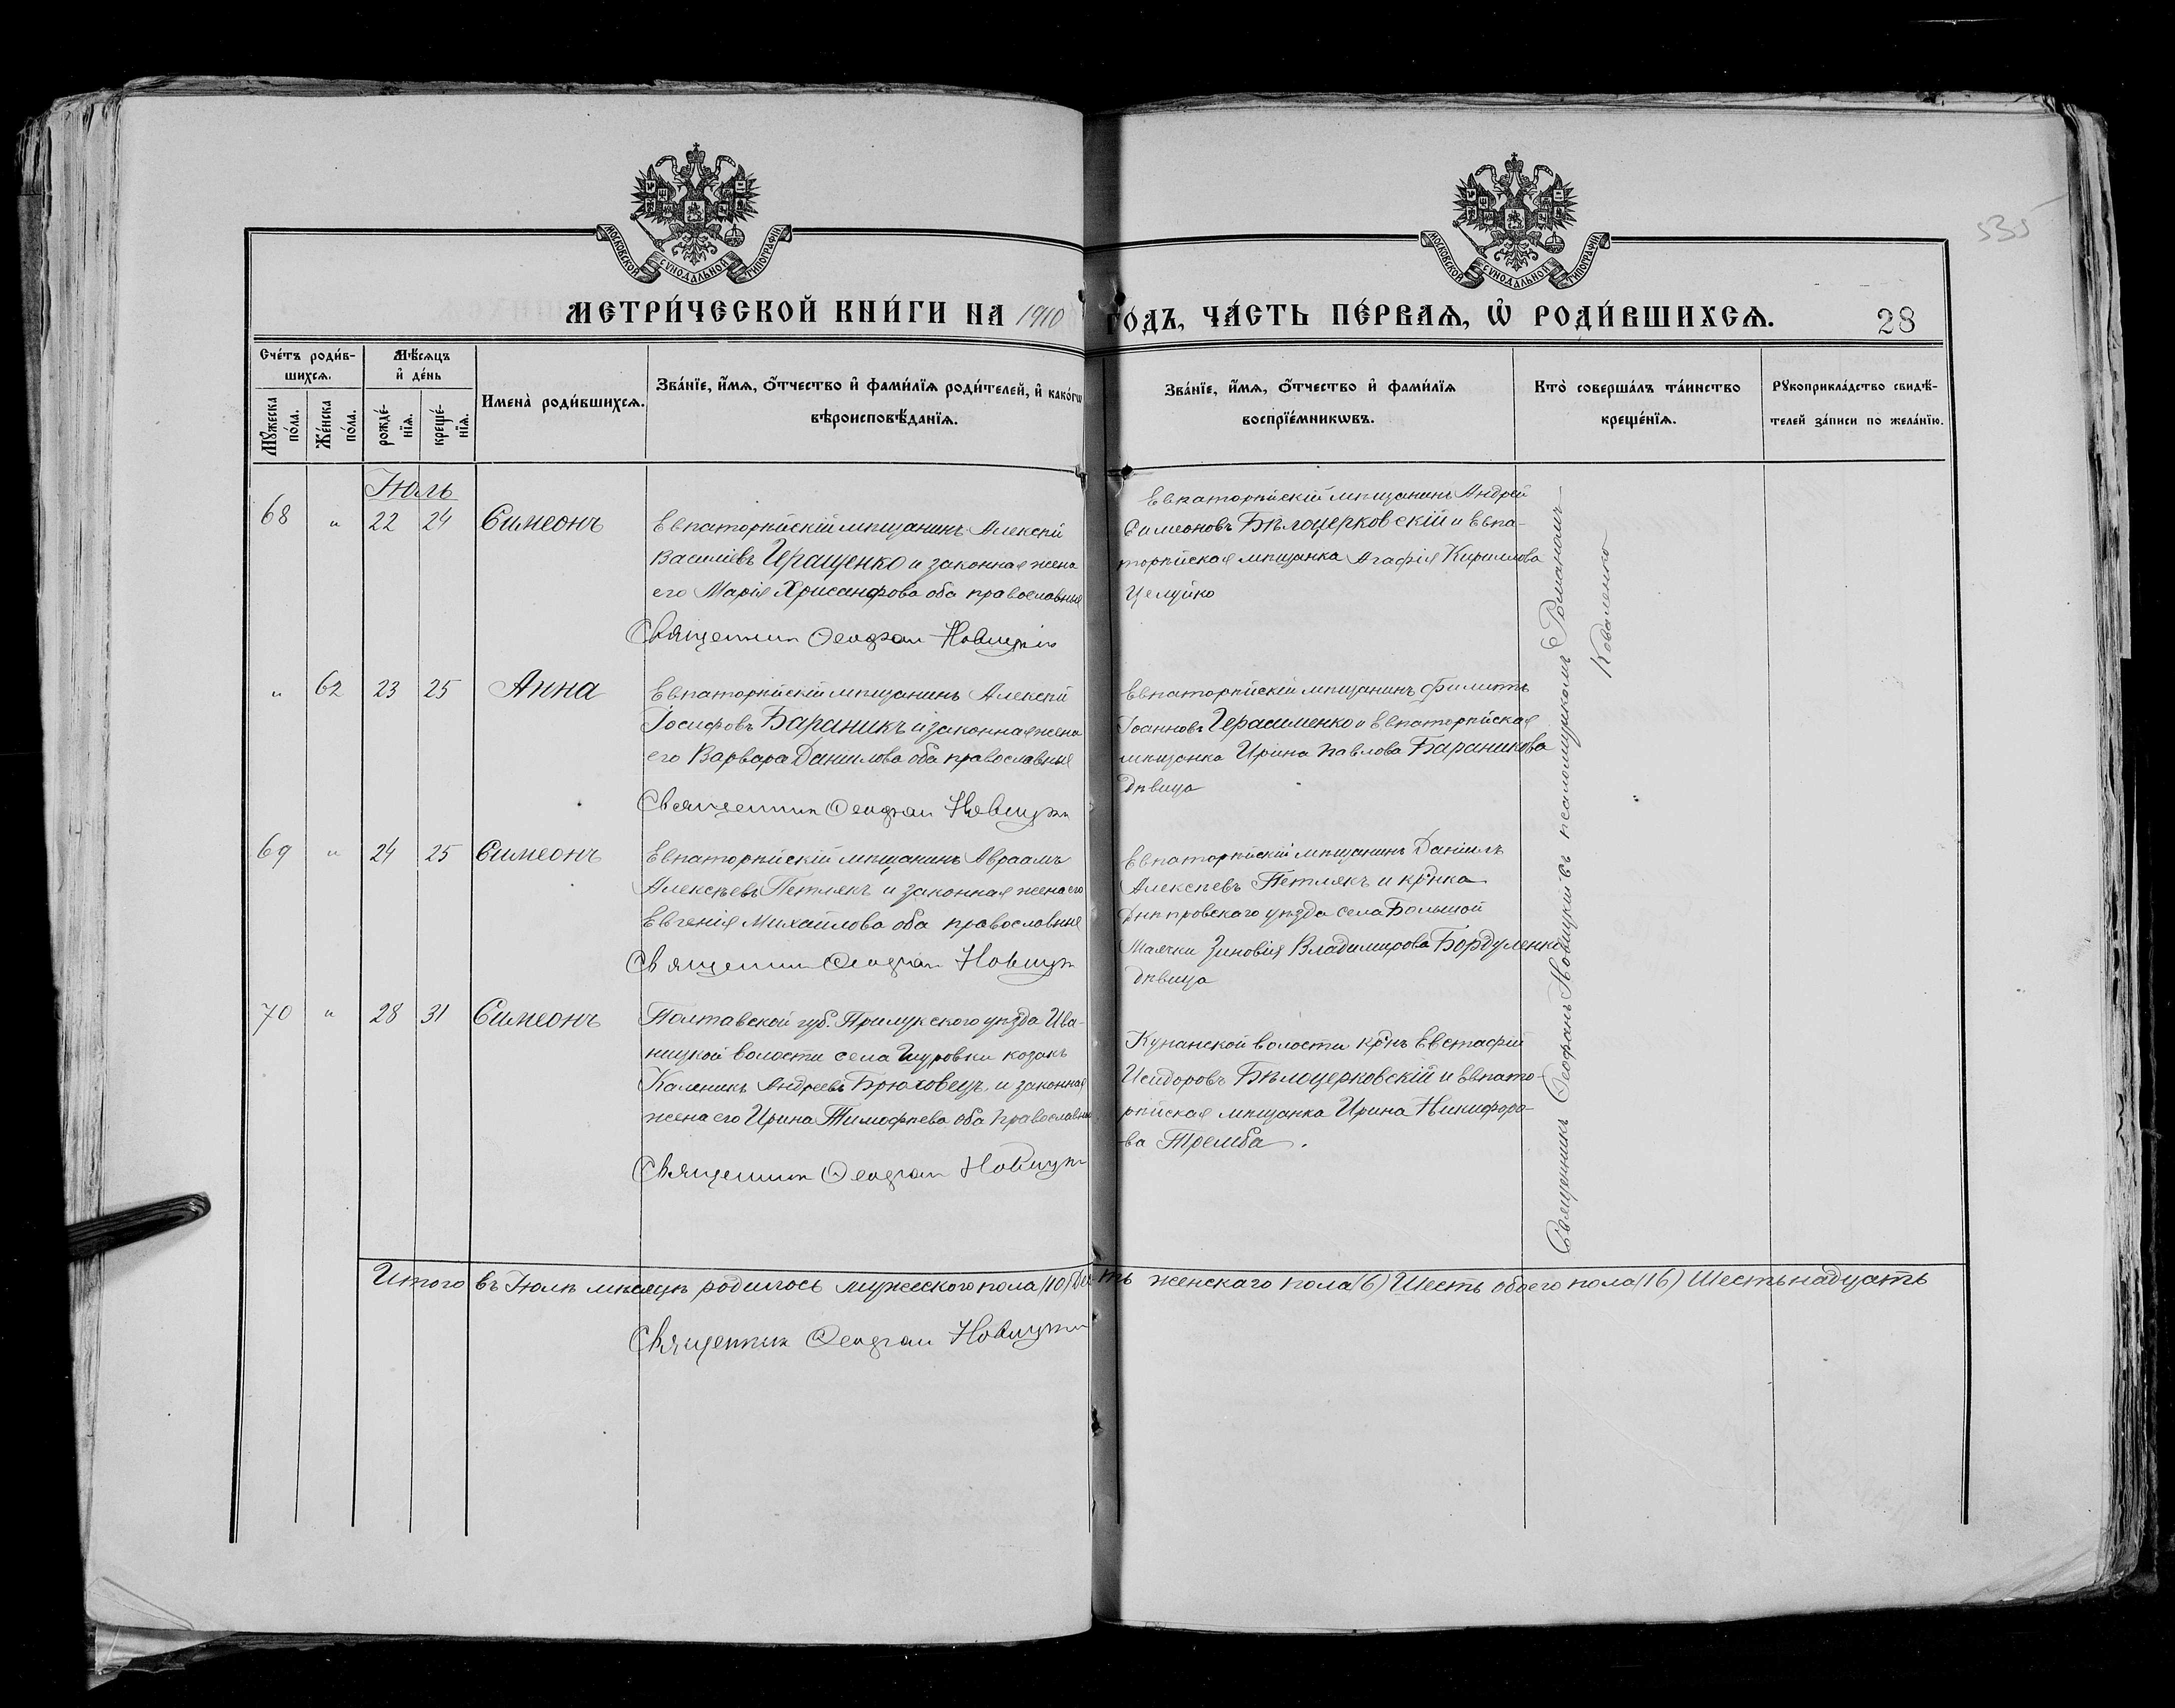 МОСКОВСКОЙ СѴНОДАЛЬНОЙ ТИПОГРАФІИ
МОСКОВСКОЙ СѴНОДАЛЬНОЙ ТИПОГРАФІИ
535
МЕТРИ́ЧЕСКОЙ КНИ́ГИ НА 1910 ГО́ДЪ, ЧА́СТЬ ПЕ́РВАЯ, Ѡ҆ РОДИ́ВШИХСЯ.
28
Сче́тъ роди́в-
шихсѧ.
Мꙋ́жеска по́ла.
Же́нска по́ла.
Мѣ́сѧцъ
и҆ де́нь
рожде́-
нїѧ.
креще́-
нїѧ.
Имена̀ роди́вшихсѧ.
Зва́нїе, и҆́мѧ, ѻ҆́тчество и҆ фами́лїѧ роди́телей, и҆ како́гѡ
вѣроисповѣ́данїѧ.
Зва́нїе, и҆́мѧ, ѻ҆́тчество и҆ фами́лїѧ
воспрїе́мникѡвъ.
Кто̀ соверша́лъ та́инство
креще́нїѧ.
Рꙋкоприкла́дство свидѣ́-
телей за́писи по жела́нїю.
Іюль
68 " 22 24 Симеонъ
Евпаторійскій мѣщанинъ Алексѣй
Василіевъ Иращенко и законная жена
его Марія Хрисанфова оба православные
Священник Феофан Новицкій
Евпаторійскій мѣщанинъ Андрей
Симеоновъ Бѣлоцерковскій и Евпа-
торійская мѣщанка Агафія Кириллова
Целуйко
" 62 23 25 Анна
Евпаторійскій мѣщанинъ Алексѣй
Іосифовъ Бараникъ и законная жена
его Варвара Даниилова оба православные
Священник Феофан Новицкій
Евпаторійскій мѣщанинъ Филиппъ
Іоанновъ Герасименко и Евпаторійская
мѣщанка Ирина Павлова Бараникова
дѣвица
69 " 24 25 Симеонъ
Евпаторійскій мѣщанинъ Авраамъ
Алексѣевъ Петлякъ и законная жена его
Евгенія Михайлова оба православные
Священник Феофан Новицкій
Евпаторійскій мѣщанинъ Даніилъ
Алексѣевъ Петлякъ и кр-нка
Днѣпровскаго уѣзда села Большой
Маячки Зиновія Владимирова Бордуленко
дѣвица
70 " 28 31 Симеонъ
Полтавской губ. Прилукского уѣзда Ива-
ницкой волости села Щуровки козакъ
Каленикъ Андреевъ Брюховецъ и законная
жена его Ирина Тимофѣева оба православные
Священник Феофан Новицкій
Кунанской волости кр-нъ Евстафій
Исидоровъ Бѣлоцерковскій и Евпато-
рійская мѣщанка Ирина Никифоро-
ва Тремба.
Священникъ Феофанъ Новицкій съ псаломщикомъ Романомъ
Коваленко
Итого въ Іюлѣ мѣсяцѣ родилось мужескаго пола (10) десять женскаго пола (6) Шесть обоего пола (16) Шестьнадцать
Священник Феофан Новицкій